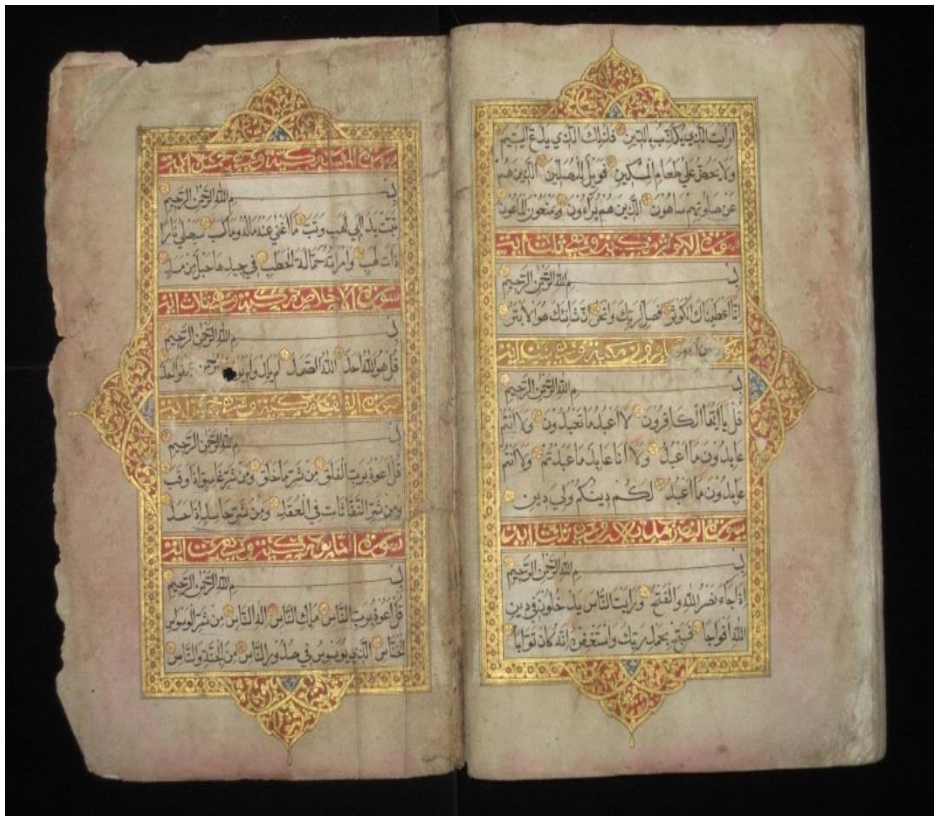 ارايت الذي يكذب بالدين فذلك الذي يدع اليتيم
ولا يحض على طعام المسكين فويل للمصلين الذين هم
عن صلوتهم ساهون الذين هم يراءون ويمنعون الماعون
سورة الكوثر مكية وهي ثلث آية
بسم الله الرحمن الرحيم
انا اعطيناك الكوثر فصل لربك وانحر ان شانئك هو الابتر
مكية وهي
بسم الله الرحمن الرحيم
قل يا ايها الكافرون لا اعبد ما تعبدون ولا انتم
عابدون ما اعبد ولا انا عابد ما عبدتم ولا انتم
عابدون ما اعبد لكم دينكم ولي دين
سورة النصر
بسم الله الرحمن الرحيم
اذا جاء نصر الله والفتح ورايت الناس يدخلون في دين
الله افواجا فسبح بحمد ربك واستغفره انه كان توابا
سورة مكية وهي
بسم الله الرحمن الرحيم
تبت يدا ابي لهب وتب ما اغنى عنه ماله وما كسب سيصلى نارا
ذات لهب وامراته حمالة الحطب في جيدها حبل من مسد
سورة الاخلاص مكية وهي
بسم الله الرحمن الرحيم
قل هو الله احد الله الصمد لم يلد ولم يولد احد
سورة الفلق مكية وهي
بسم الله الرحمن الرحيم
قل اعوذ برب الفلق من شر ما خلق ومن شر غاسق اذا وقب
ومن شر النفاثات في العقد ومن شر حاسد اذا حسد
سورة الناس مكية وهي
بسم الله الرحمن الرحيم
قل اعوذ برب الناس ملك الناس اله الناس من شر الوسواس
الخناس الذي يوسوس في صدور الناس من الجنة والناس